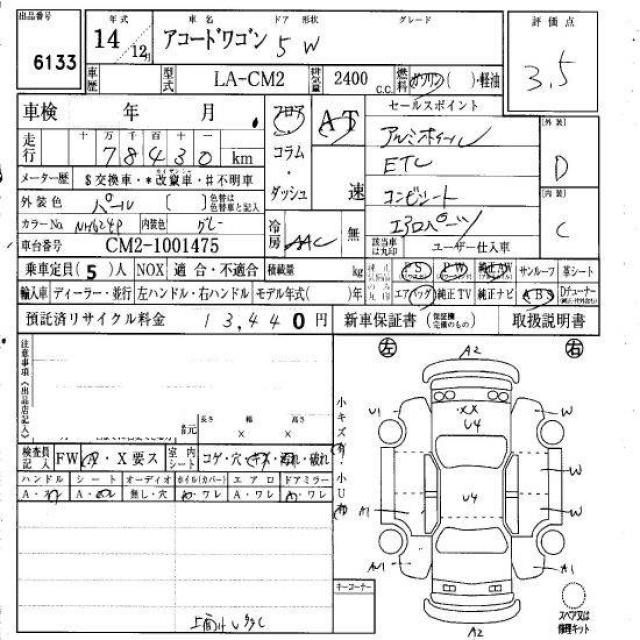 出品番号 年式 車名 ドア 形状 グレード 評価点
6133 14 12月 アコードワゴン 5 W 3.5
車歴 型式 LA-CM2 排気量 2400 c.c. 燃料 ガソリン( )・軽油
車検 年 月 フロア AT セールスポイント [外装]
走行 十 万 千 百 十 一 コラム アルミホイール D
78430 km ・ ETC
メーター歴 $交換車・*改竄車・#不明車 ダッシュ 速 コンビシート [内装]
外装色 パール [ ] 色替は色替車と記入 エアロパーツ C
カラーNo. NH624P 内装色 グレー 冷房 AAC 無 該当車は丸印 ユーザー仕入車
車台番号 CM2-1001475
乗車定員(5)人 NOX 適合・不適合 積載量 kg PS PW 純正AW サンルーフ 革シート
輸入車 ディーラー・並行 左ハンドル・右ハンドル モデル年式( )年 エアバッグ 純正TV 純正ナビ ABS Dチューナー
預託済リサイクル料金 13,440円 新車保証書 取扱説明書
注意事項《出品店記入》
左 A2 右
長さ 幅 高さ
× ×
小キズ有・小U有
U1 XX W
U4
検査員記入 FW X要ス 室内シート コゲ・穴・キズ・汚れ・破れ
ハンドル シート オーディオ ホイル(カバー) エアロ ドアミラー
無し・穴 A・ワレ
W
U4
A1 W
A1
キーコーナー
スペア又は修理キット
A2